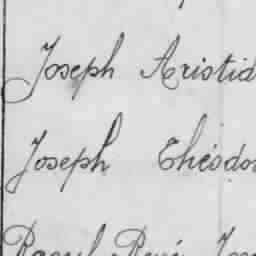 Joseph Aristid
Joseph Théodo
Raoul René Jos